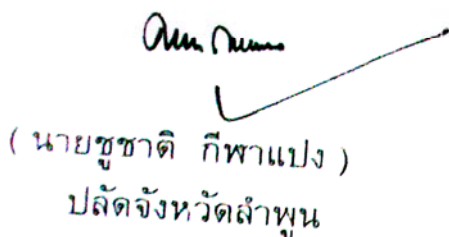 ( นายชูชาติ กีฬาแปง )
ปลัดจังหวัดลำพูน